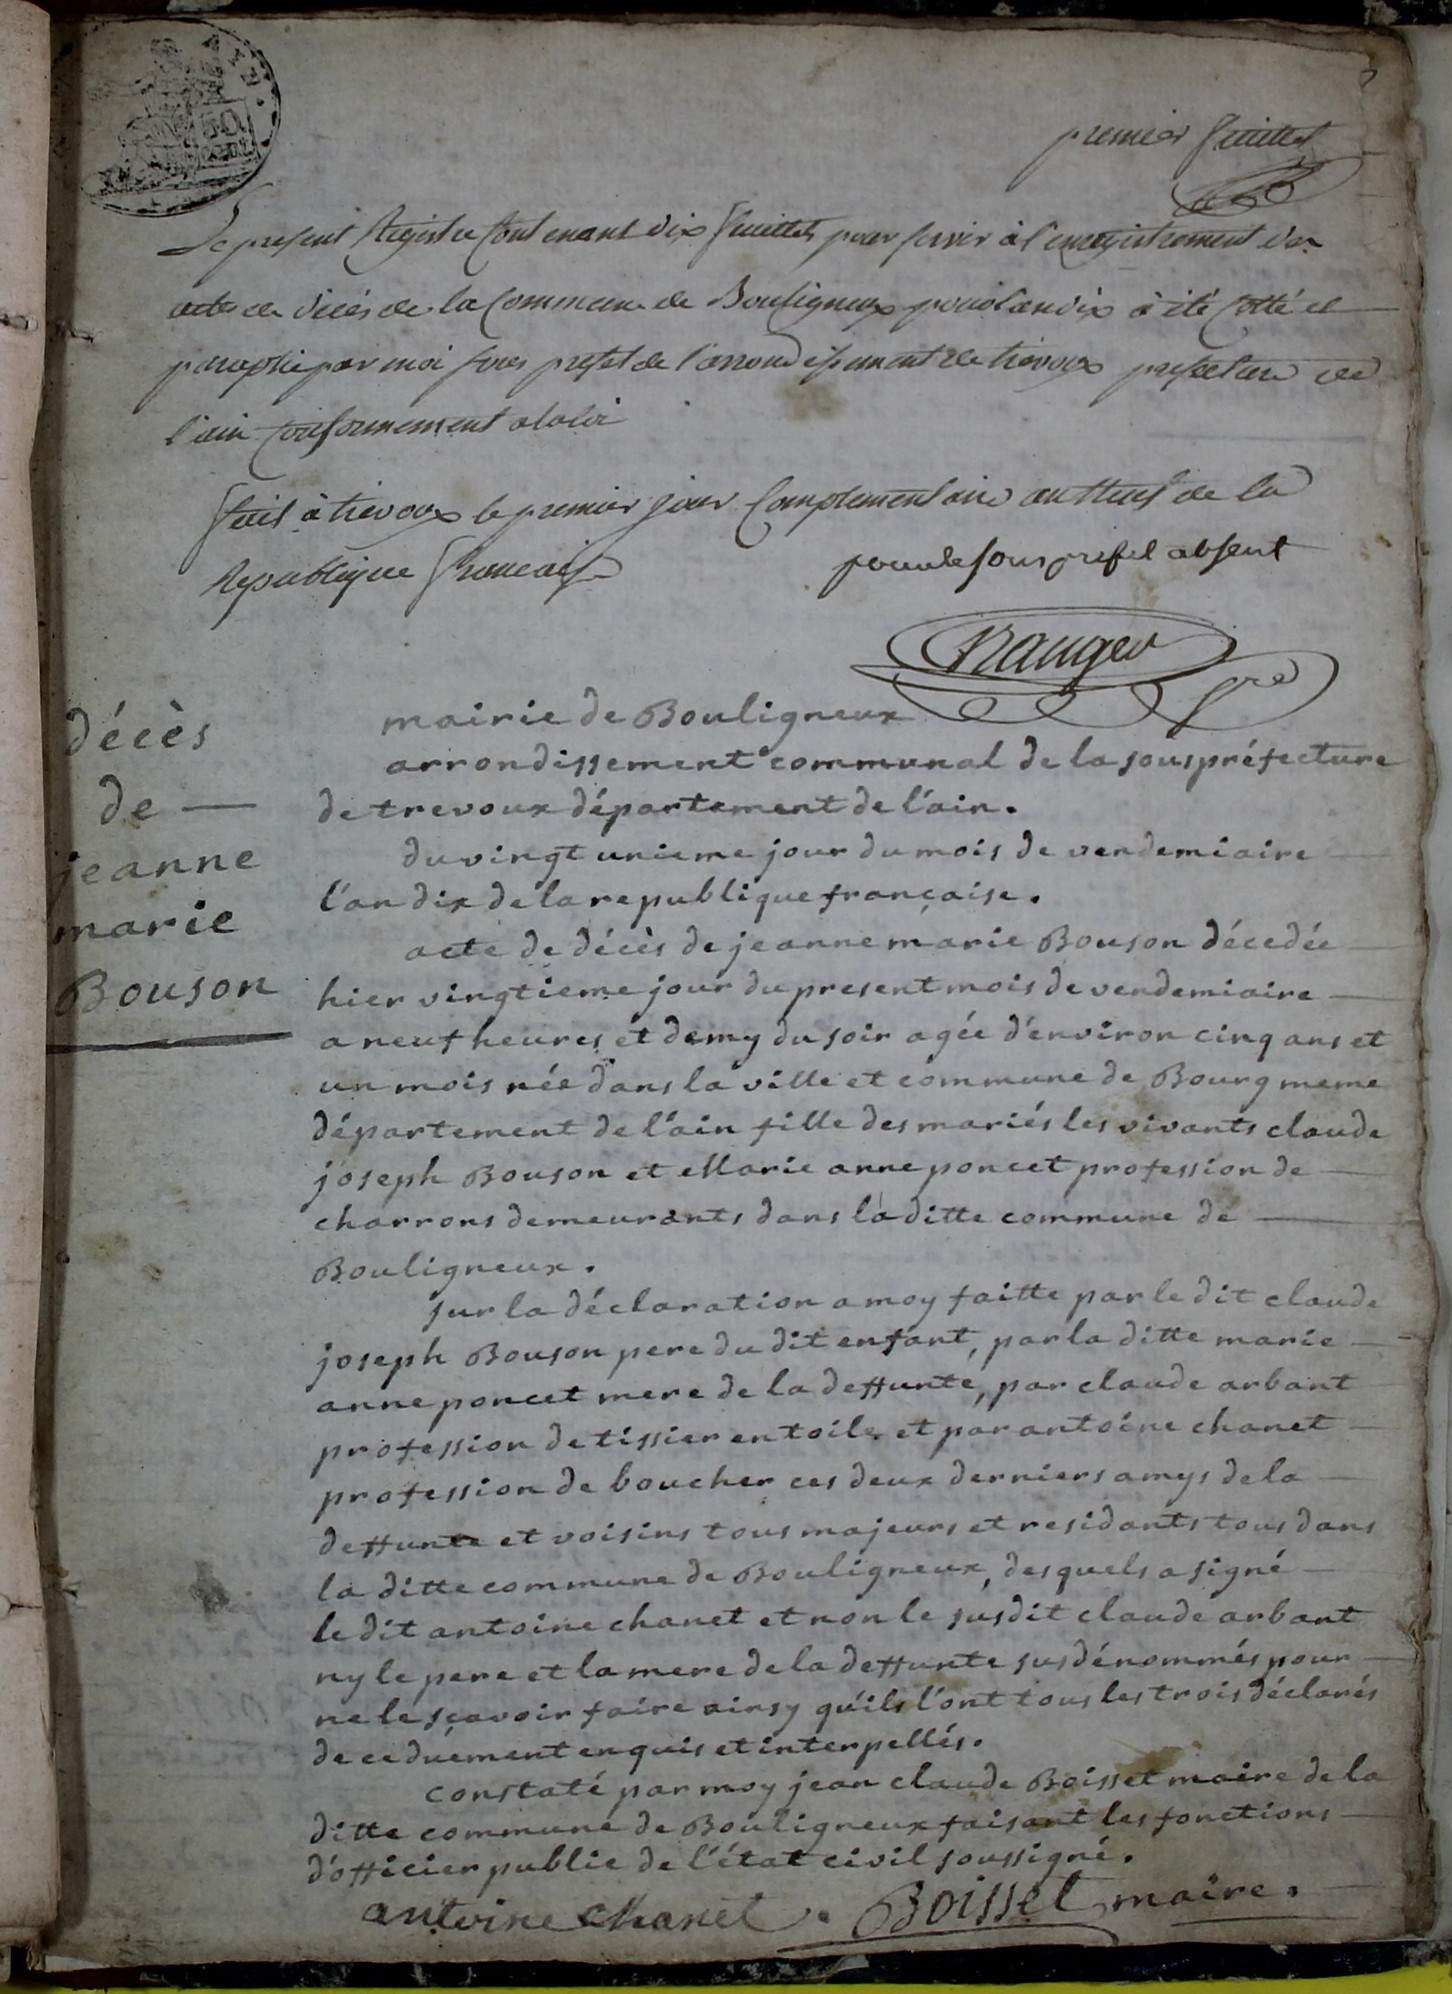 premier feuillet
Le present Registre Contenant dix feuillets pour servir à l'enregistrement des
actes de décès de la Commune de Bouligneux pour l'an dix à été Cotté et
paraphé par moi sous prefet de l'arrondissement de trevoux prefecture de
l'ain Conformement a la loi
fait à trevoux le premier jour Complementaire an neuf de la
Republique francaise
pour le sous prefet absent
décès
de —
jeanne
marie
Bouson
mairie de Bouligneux
arrondissement communal de la souspréfecture
de trevoux département de l'ain.
du vingt unieme jour du mois de vendemiaire
l'an dix de la republique française.
acte de décès de jeanne marie Bouson décedée
hier vingtieme jour du present mois de vendemiaire
a neuf heures et demy du soir agée d'environ cinq ans et
un mois née dans la ville et commune de Bourg meme
département de l'ain fille des mariés les vivants claude
joseph Bouson et Marie anne poncet profession de
charrons demeurants dans la ditte commune de
Bouligneux.
sur la déclaration a moy faitte par le dit claude
joseph Bouson pere du dit enfant, par la ditte marie
anne poncet mere de la deffunte, par claude arbant
profession de tissier en toile, et par antoine chanet
profession de boucher ces deux derniers amys de la
deffunte et voisins tous majeurs et residants tous dans
la ditte commune de Bouligneux, desquels a signé
le dit antoine chanet et non le susdit claude arbant
ny le pere et la mere de la deffunte susdénommés pour
ne le sçavoir faire ainsy qu'ils l'ont tous les trois déclarés
de ce duement enquis et interpellés.
constaté par moy jean claude Boisset maire de la
ditte commune de Bouligneux faisant les fonctions
d'officier public de l'état civil soussigné.
antoine chanet. Boisset maire.